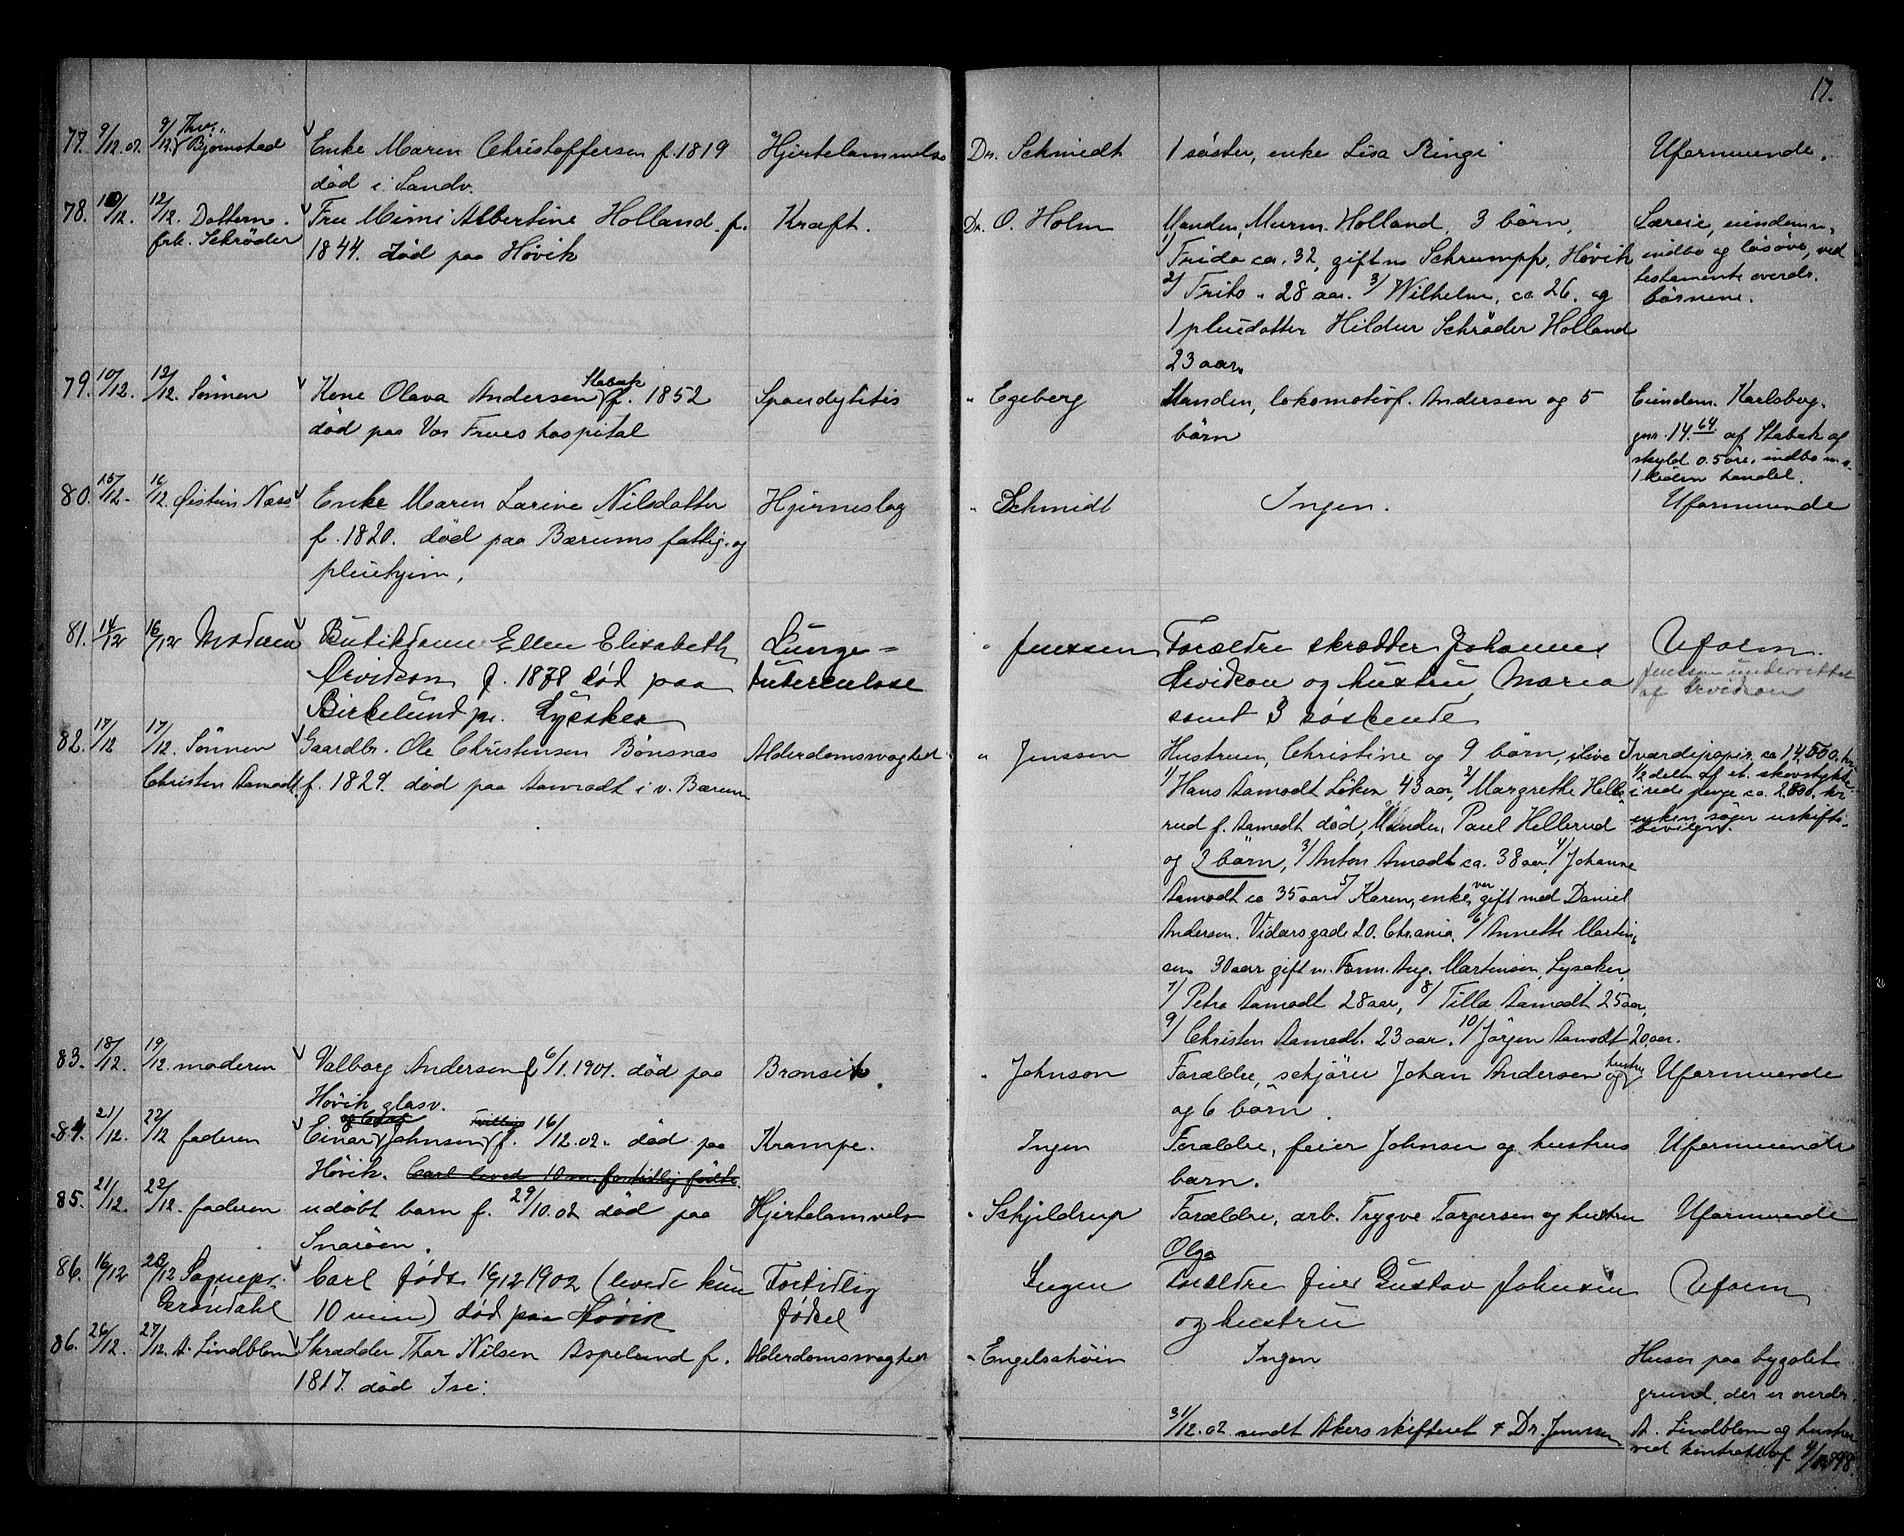 17.
77. 9/12.02. 9/12. Thv. Bjørnstad Enke Maren Christoffersen f. 1819 Hjertelammelse Dr. Schmidt 1 søster, enke Lisa Ringi Uformuende.
død i Sandv.
78. 10/12. 12/12. Dattern. Fru Mimi Albertine Holland f. Kræft. Dr. O. Holm Manden, Murm. Holland, 3 børn, Særeie, eiendom,
frk. Schrøder 1844. død paa Høvik 1/ Frida ca. 32, gift m Schrumpf, Høvik indbo og løsøre, ved
2/ Frits " 28 aar. 3/ Wilhelm, ca 26. og testamente overdr.
1 pleiedatter Hildur Schrøder Holland børnene.
23 aar.
79. 10/12. 12/12. Sønnen Kone Olava Andersen Stabæk f. 1852 Spondylitis " Egeberg Manden, lokomotivf. Andersen og 5 Eiendom. Karlsberg,
død paa Vor Frues hospital børn gnr. 14.64 af Stabæk af
skyld 0.5 øre, indbo
80. 15/12. 16/12. Øistein Næss Enke Maren Larine Nilsdatter Hjerneslag " Schmidt Ingen. Uformuende
f. 1820. død paa Bærums fattig. og
pleiehjem.
81. 14/12 16/12 Moderen Butikdame Ellen Elisabeth Lunge= " Jenssen Forældre skrædder Johannes Uform.
Arvidson f. 1878 død paa tuberculose Arvidson og hustru Maria Jenssen underrettet
Birkelund pr. Lysaker samt 3 søskende af Arvidson
82. 17/12 17/12. Sønnen Gaardbr. Ole Christensen Bønsnæs Alderdomssvaghed " Jenssen Hustruen, Christine og 9 børn, ilive I værdipapir. ca 14,500. kr
Christen Aamodt. f. 1829. død paa Aamodt i v. Bærum 1/ Hans Aamodt Løken 43 aar, 2/ Margrethe Helle= 1/2 delen af et skovstykke
rud f. Aamodt død, Manden, Paul Hellerud i rede penge ca. 2,800. kr
og 3 børn, 3/ Anton Amodt ca. 38 aar, 4/ Johanne enken søger uskifte-
bevilgn.
Aamodt ca 35 aar 5/ Karen, enke, var gift med Daniel
Andersen. Vidarsgade 20. Chrania. 6/ Annette Martin=
sen 30 aar gift m. Form. Aug. Martinsen, Lysaker,
7/ Petra Aamodt 28 aar, 8/ Tilla Aamodt 25 aar,
9/ Christen Aamodt. 23 aar. 10/ Jørgen Aamodt 20 aar.
83. 18/12. 19/12. moderen Valborg Andersen f 6/1.1901. død paa Bronsit. " Johnson Forældre, skjører Johan Andersen og hustru Uformuende
Høvik glasv. og 6 børn.
84. 21/12. 22/12 faderen Einar Johnsen f. 16/12.02. død paa Krampe. Ingen Forældre, feier Johnsen og hustrus Uformuende
Høvik. Carl levede 10 m. fortidlig fødte. barn.
85. 21/12. 22/12. faderen udøbt barn f. 29/10.02 død paa Hjertelammelse " Schjeldrup Forældre, arb. Trygve Torgersen og hustru Uformuende
Snarøen. Olga
86. 16/12 28/12 Sognepr. Carl født 16/12 1902 (levede kun Fortidlig Ingen Forældre feier Gustav Johnsen Uform
Grøndahl 10 min) død paa Høvik fødsel og hustru
86. 26/12. 27/12. A. Lindblom Skrædder Thor Nilsen Aspelund f. Alderdomssvaghed " Engelschiøn Ingen Huser paa bygslet
1817. død grund, der er overdr.
31/12.02 sendt Akers skifteret & Dr. Jenssen A. Lindblom og hustru
ved kontrakt af